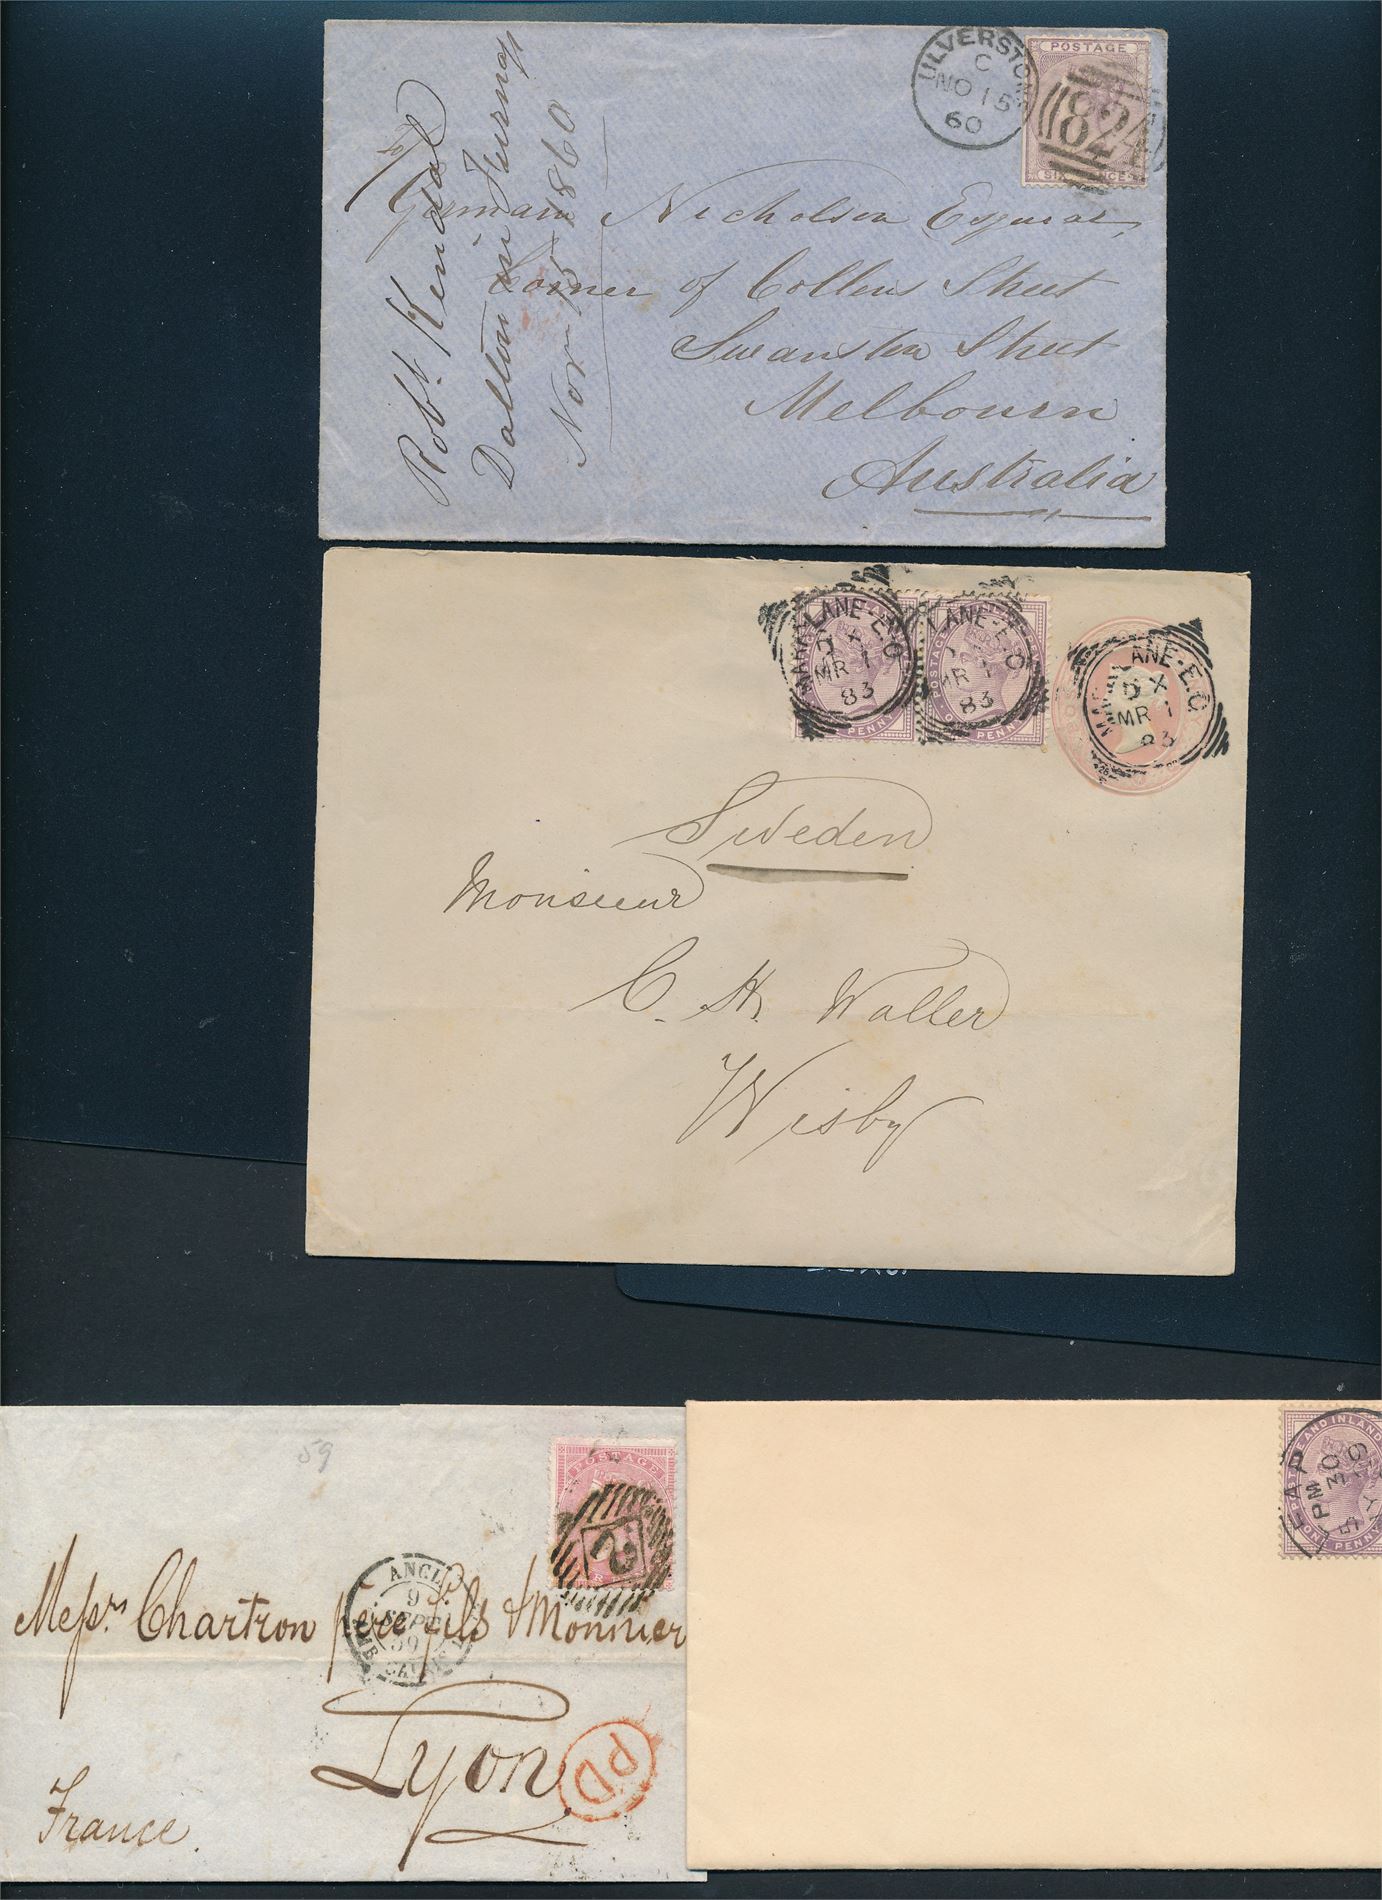 ULVERSTON
C
NO 15
60
POSTAGE
824
SIX PENCE
Robt. Kendal
Dalton in Furness
Nov 15 1860
German Nicholson Esquire,
Corner of Collens Street
Swanston Street
Melbourn
Australia
MARK-LANE-E.C
D X
MR 1
83
PENNY
LANE-E.C
MR 1
83
POSTAGE
ONE PENNY
MARK LANE-E.C.
D X
MR 1
83
Sweden
Monsieur
C. H. Waller
Wisby
59
POSTAGE
2
ANGL.
9
SEPT
59
AMB. CALAIS
Messrs Chartron père fils & Monnier
Lyon
PD
France.
POSTAGE AND INLAND
ONE PENNY
5 PM
30